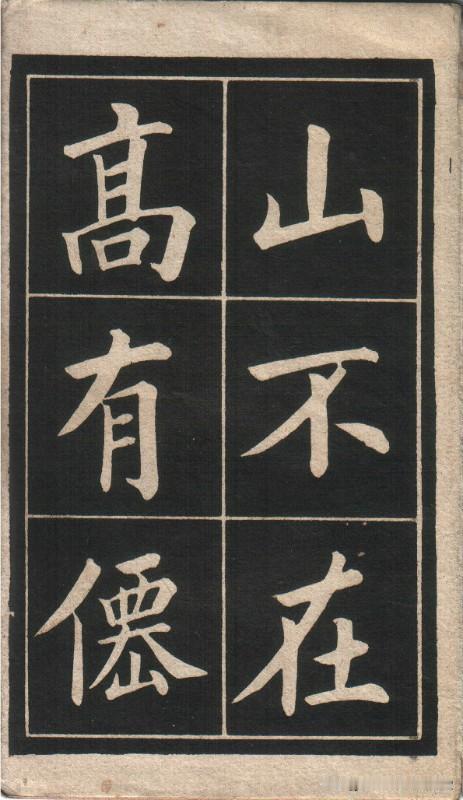 山不在
髙有僊